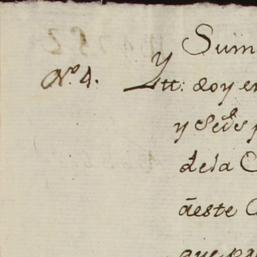 Sum
Nº 4. Ytt: doy en
y Sedˢ p
dela C
āeste C
que pa